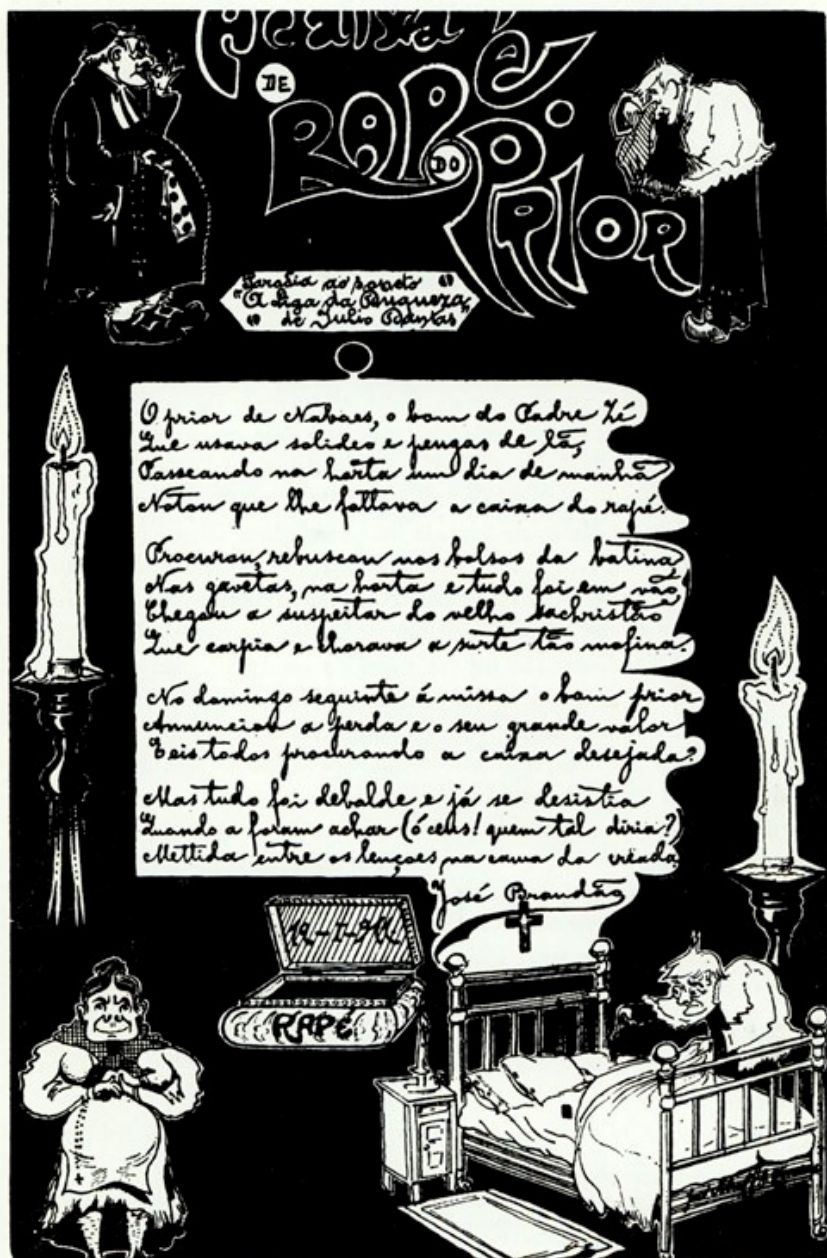 A caixa
DE RAPÉ
DO PRIOR
Parodia ao soneto
"A Liga da Duqueza"
de Julio Dantas
O prior de Nabaes, o bom do Padre Zé
Que usava solideo e peugas de lã,
Passeando na horta um dia de manhã
Notou que lhe faltava a caixa do rapé.
Procurou, rebuscou nos bolsos da batina
Nas gavetas, na horta e tudo foi em vão,
Chegou a suspeitar do velho sachristão
Que carpia e chorava a surte tão mofina.
No domingo seguinte á missa o bom prior
Annunciou a perda e o seu grande valor
E eis todos procurando a caixa desejada?
Mas tudo foi debalde e já se desistia
Quando a foram achar (ó ceus! quem tal diria?)
Mettida entre os lençoes na cama da creada
José Brandão
RAPÉ